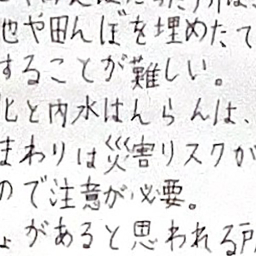 池や田んぼを埋めたて
することが難しい。
化と内水はんらんは、
まわりは災害リスクが
ので注意が必要。
ょがあると思われる所